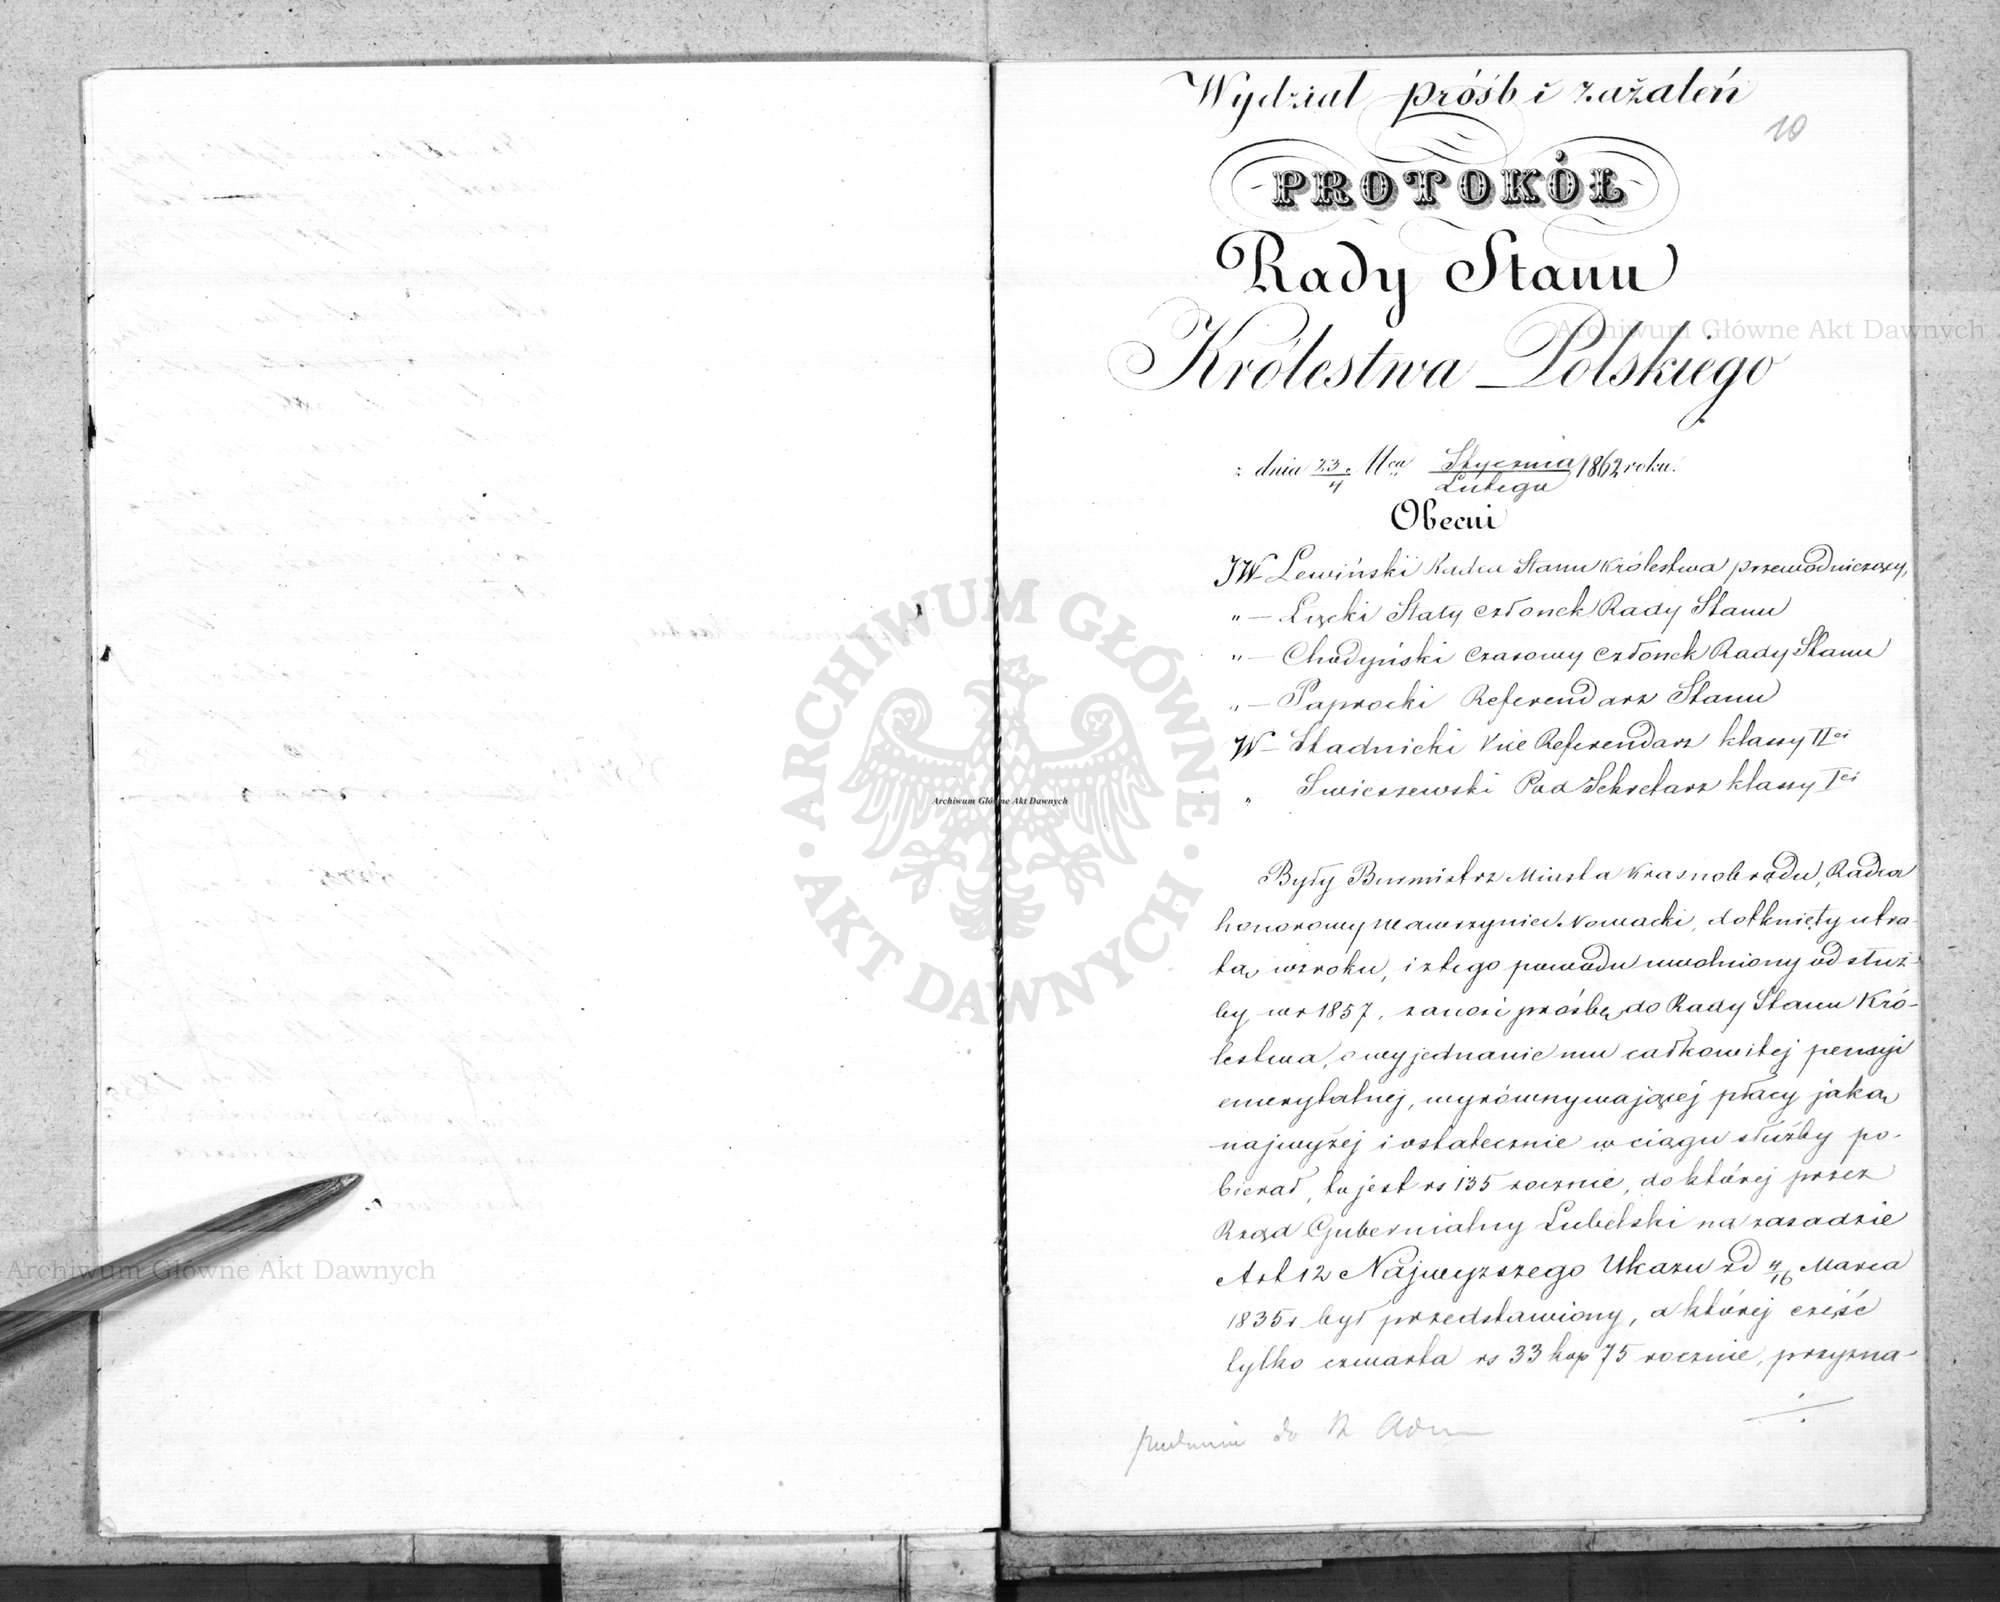 Wydział próśb i zażaleń
10
PROTOKÓŁ
Rady Stanu
Królestwa Polskiego
z dnia 23/4 Mca Stycznia/Lutego 1862 roku.
Obecni
JW Lewiński Radca Stanu Królestwa przewodniczący,
" — Łęcki Stały członek Rady Stanu
" — Chodyński czasowy członek Rady Stanu
" — Paprocki Referendarz Stanu
W — Stadnicki Vice Referendarz klassy IIej
" Swieszewski Pod Sekretarz klassy Iej
Były Burmistrz Miasta Krasnobrodu, Radca
honorowy Wawrzyniec Nowacki, dotknięty utra-
tą wzroku, i z tego powodu uwolniony od służ-
by w r 1857, zanosi prośbę do Rady Stanu Kró-
lestwa, o wyjednanie mu całkowitej pensyi
emerytalnej, wyrównywającej płacy jaką
najwyżej i ostatecznie w ciągu służby po-
bierał, to jest rs 135 rocznie, do której przez
Rząd Gubernialny Lubelski na zasadzie
Art 12 Najwyższego Ukazu z d 4/16 Marca
1835 r był przedstawiony, a której część
tylko czwarta rs 33 kop 75 rocznie, przyzna-
do R Adm
Archiwum Główne Akt Dawnych
Archiwum Główne Akt Dawnych
Archiwum Główne Akt Dawnych
ARCHIWUM GŁÓWNE · AKT DAWNYCH ·